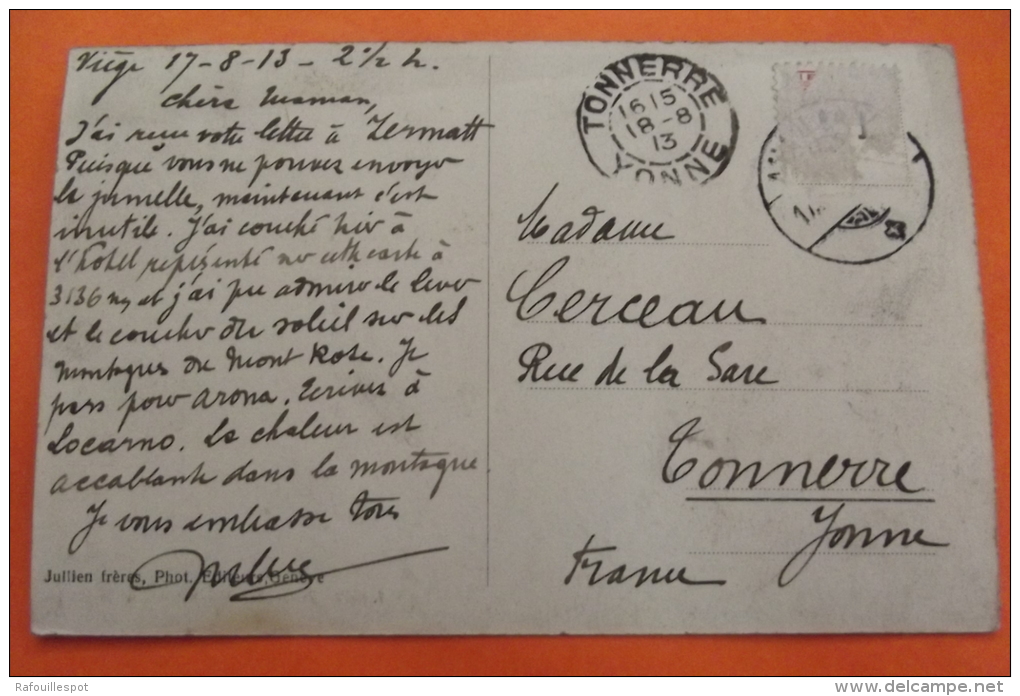 Viège 17-8-13 - 2 1/2 h.
Chère Maman,
J'ai reçu votre lettre à Zermatt
Puisque vous ne pouvez envoyer
la jumelle, maintenant c'est
inutile. J'ai couché hier à
l'hôtel représenté sur cette carte à
3136 m, et j'ai pu admirer le lever
et le coucher du soleil sur les
montagnes du Mont Rose. Je
pars pour Arona. Ecrivez à
Locarno. La chaleur est
accablante dans la montagne
Je vous embrasse tous
Jullien frères, Phot. Editeurs, Genève
TONNERRE
16 15
18-8
13
YONNE
Madame
Cerceau
Rue de la Gare
Tonnerre
Yonne
France
Rafouillespot
www.delcampe.net